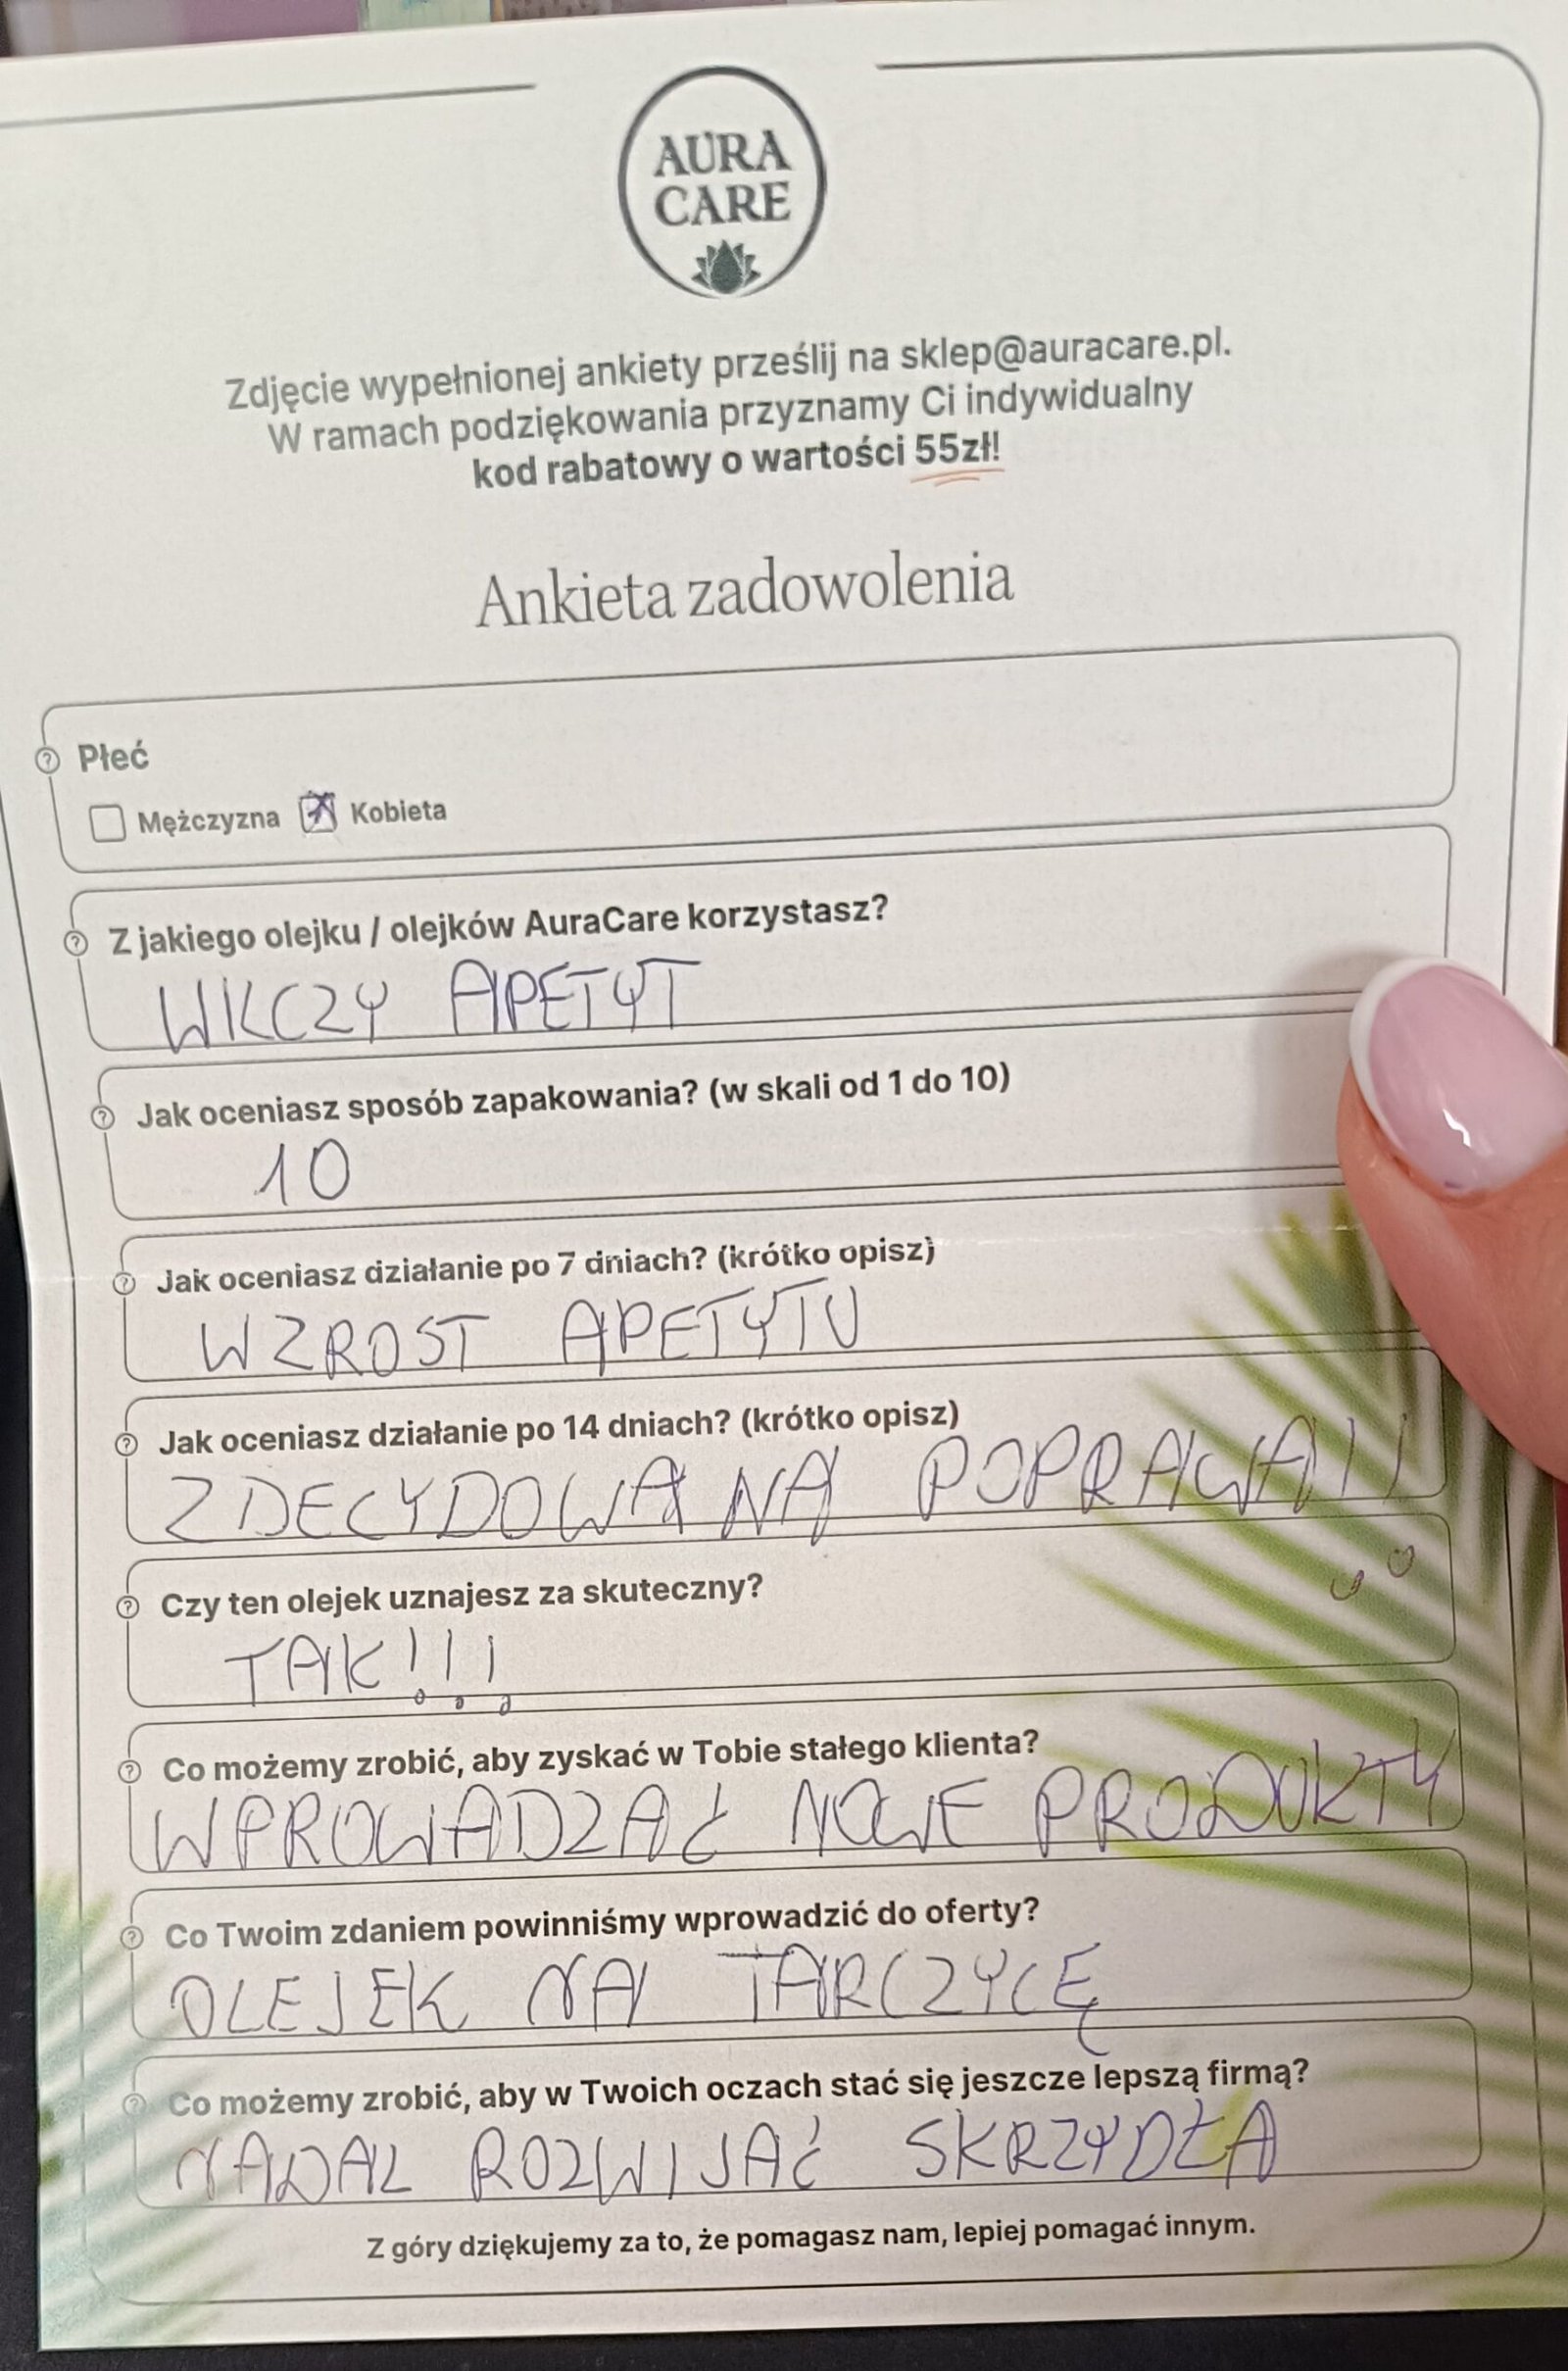 AURA
CARE
Zdjęcie wypełnionej ankiety prześlij na sklep@auracare.pl.
W ramach podziękowania przyznamy Ci indywidualny
kod rabatowy o wartości 55zł!
Ankieta zadowolenia
Płeć
Mężczyzna Kobieta
Z jakiego olejku / olejków AuraCare korzystasz?
WKCZY APETYT
Jak oceniasz sposób zapakowania? (w skali od 1 do 10)
10
Jak oceniasz działanie po 7 dniach? (krótko opisz)
WZROST APETYTU
Jak oceniasz działanie po 14 dniach? (krótko opisz)
ZDECYDOWANA POPRAWA!!
Czy ten olejek uznajesz za skuteczny?
TAK!!!
Co możemy zrobić, aby zyskać w Tobie stałego klienta?
WPROWADZAĆ NOWE PRODUKTY
Co Twoim zdaniem powinniśmy wprowadzić do oferty?
OLEJEK NA TARCZYCĘ
Co możemy zrobić, aby w Twoich oczach stać się jeszcze lepszą firmą?
NADAL ROZWIJAĆ SKRZYDŁA
Z góry dziękujemy za to, że pomagasz nam, lepiej pomagać innym.